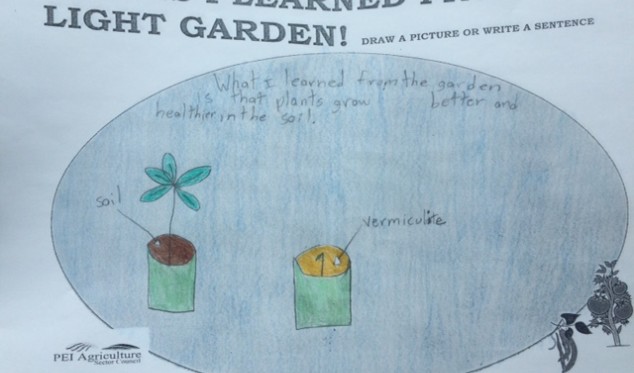 I LEARNED
LIGHT GARDEN! DRAW A PICTURE OR WRITE A SENTENCE
What I learned from the garden
is that plants grow better and
healthier in the soil.
soil
vermiculite
PEI Agriculture
Sector Council